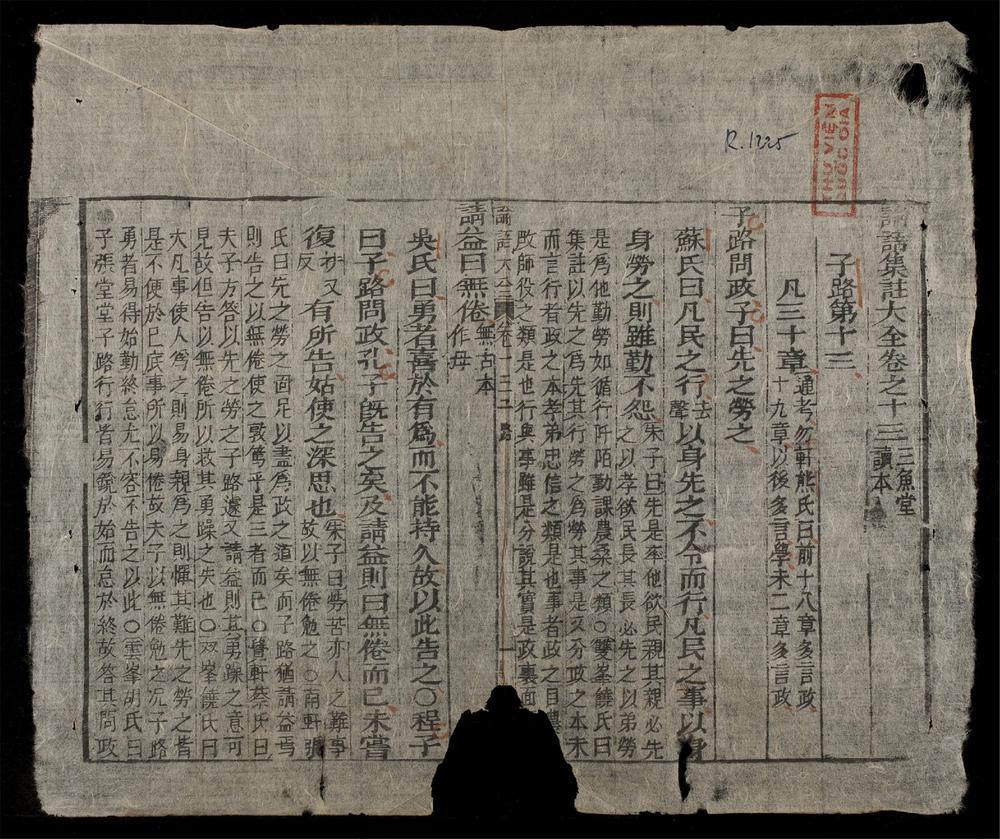 R.1225
THƯ VIỆN
QUỐC GIA
論語集註大全卷之十三 三魚堂
讀本
子路第十三
凡三十章 通考勿軒熊氏曰前十八章多言政
十九章以後多言學末二章多言政
子路問政子曰先之勞之
蘇氏曰凡民之行去聲以身先之不令而行凡民之事以身
身勞之則雖勤不怨 朱子曰先是率他欲民親其親必先
之以孝欲民長其長必先之以弟勞
是爲他勤勞如循行阡陌勤課農桑之類〇雙峯饒氏曰
集註以先之爲先其行勞之爲勞其事是又分政之本末
而言行者政之本孝弟忠信之類是也事者政之目
政師役之類是也行與事雖是分說其實是政裏面
論語大全 卷十三 一
請益曰無倦 無古本
作毋
吳氏曰勇者喜於有爲而不能持久故以此告之〇程子
曰子路問政孔子旣告之矣及請益則曰無倦而已未嘗
復扶又
反有所告姑使之深思也 朱子曰勞苦亦人之難事
故以無倦勉之〇南軒張
氏曰先之勞之固足以盡爲政之道矣而子路猶請益焉
則告之以無倦使之敦篤乎是三者而已〇覺軒蔡氏曰
夫子方答以先之勞之子路遽又請益則其勇躁之意可
見故但告以無倦所以救其勇躁之失也〇双峯饒氏曰
大凡事使人爲之則易身親爲之則憚其難先之勞之皆
是不便於己底事所以易倦故夫子以無倦勉之况子路
勇者易得始勤終怠尤不容不告之以此〇雲峯胡氏曰
子張堂堂子路行行皆易銳於始而怠於終故答其問政